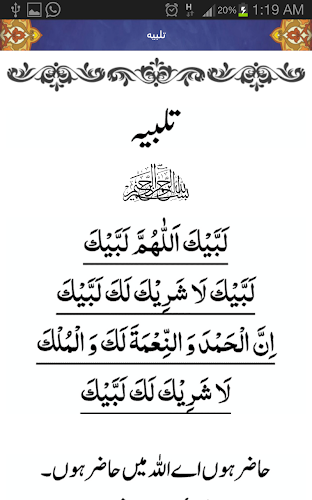 H 20% 1:19 AM
تلبیه
تلبیه
بسم الله الرحمن الرحيم
لَبَّيْكَ اَللّٰهُمَّ لَبَّيْكَ
لَبَّيْكَ لَا شَرِيْكَ لَكَ لَبَّيْكَ
اِنَّ الْحَمْدَ وَ النِّعْمَةَ لَكَ وَ الْمُلْكَ
لَا شَرِيْكَ لَكَ لَبَّيْكَ
حاضر ہوں اے اللہ میں حاضر ہوں۔